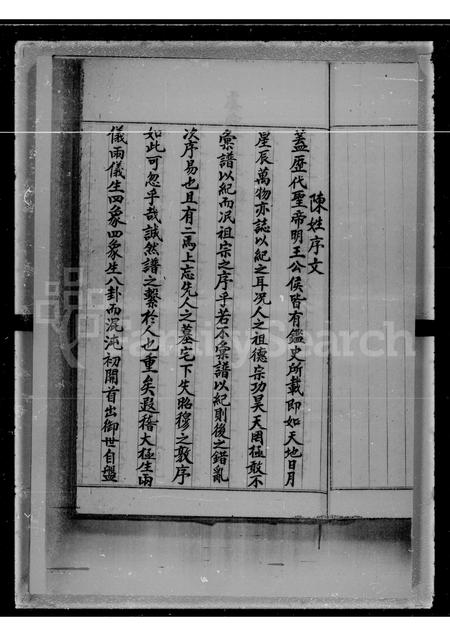 陳姓序文
蓋歷代聖帝明王公侯皆有鑑史所載即如天地日月
星辰萬物亦誌以紀之耳況人之祖德宗功昊天罔極敢不
彙譜以紀而泯祖宗之序乎若不彙譜以紀則後之錯亂
次序易也且有二焉上忘先人之墓宅下失昭穆之敦序
如此可忽乎哉誠然譜之繫於人也重矣遐稽大極生兩
儀兩儀生四象四象生八卦而混沌初開首出御世自盤
FamilySearch